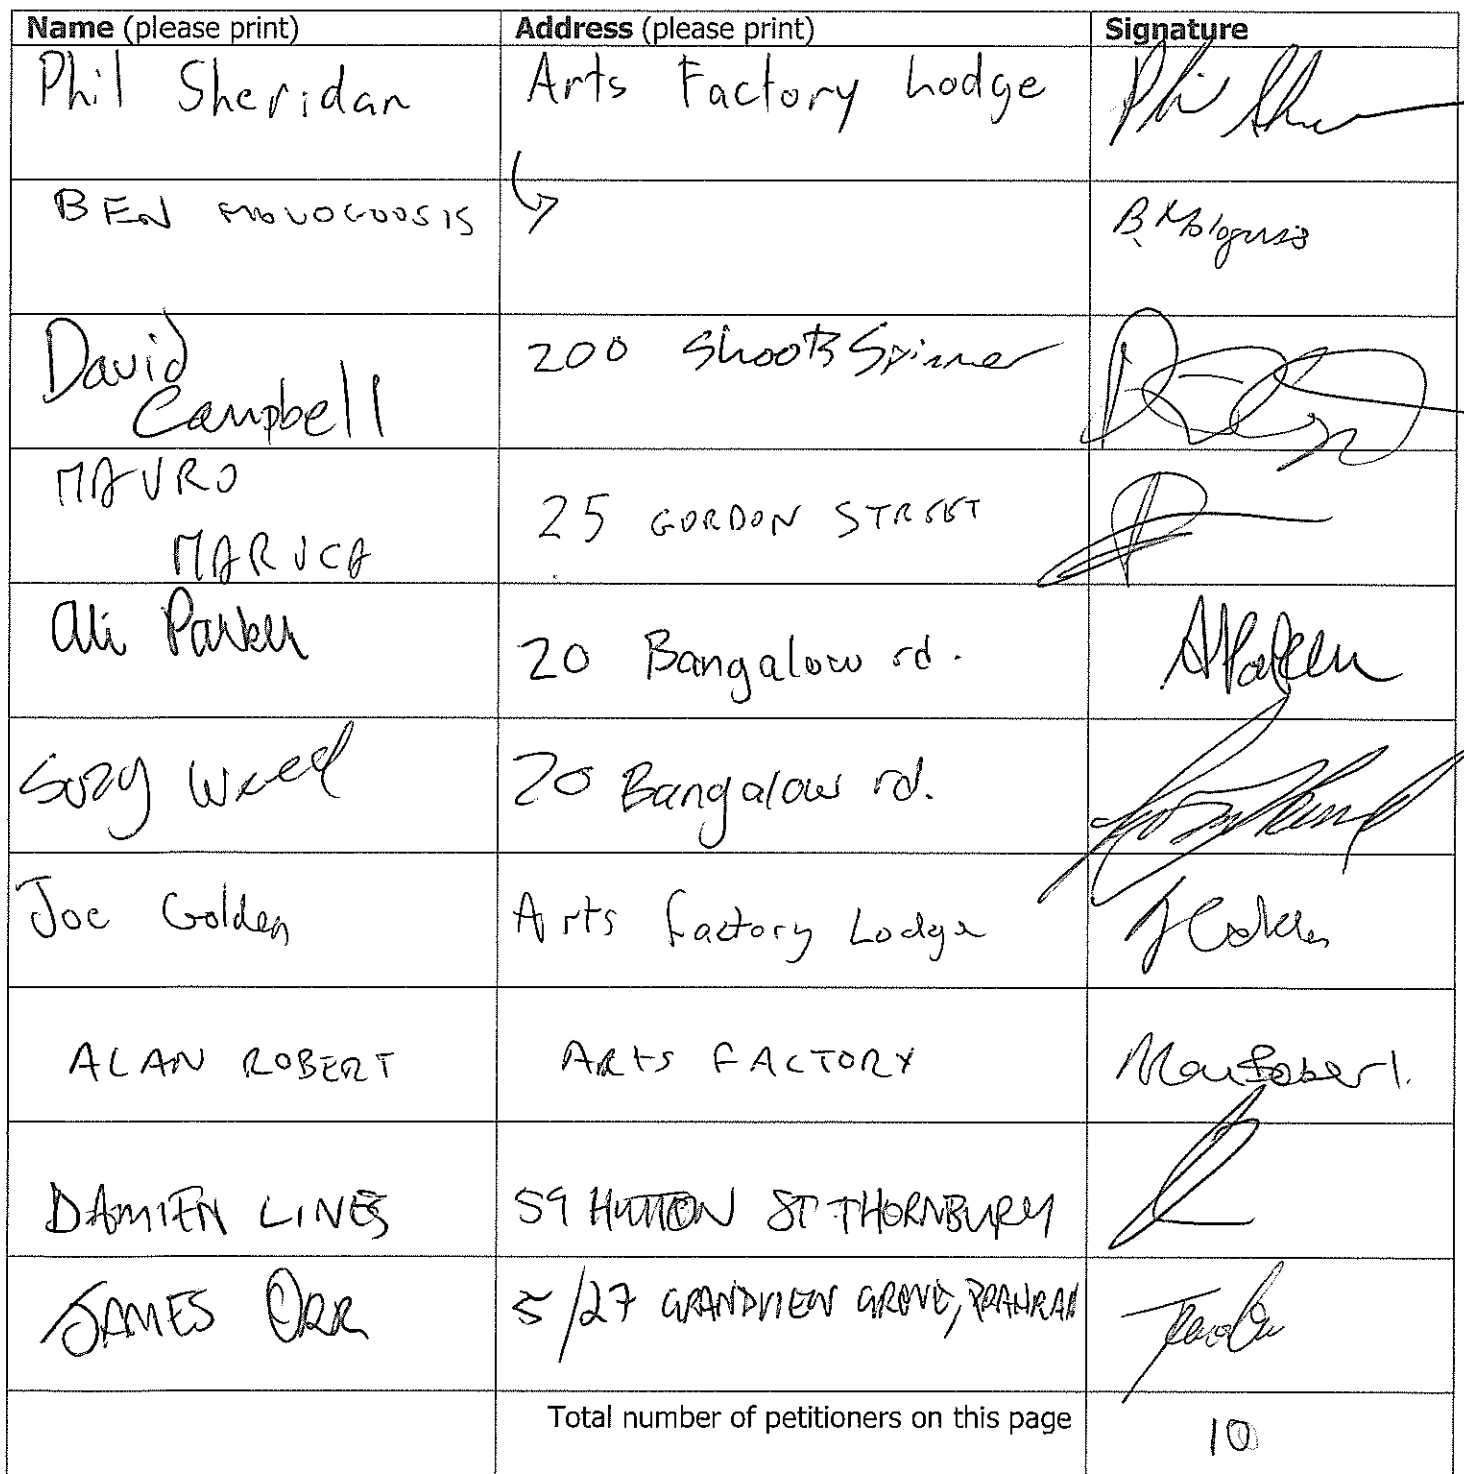 Name (please print) Address (please print) Signature
Phil Sheridan Arts Factory Lodge Phil
BEN B. Mologousis
David 200 Spinner
Campbell
MAURO
25 GORDON STREET
MARUCA
Ali Parker 20 Bangalow rd. A Parker
Suzy Weed 20 Bangalow rd.
Joe Golden Arts factory Lodge J Golden
ALAN ROBERT ARTS FACTORY Alan Robert.
DAMIEN LINES 59 HUTTON ST THORNBURY
JAMES ORR 5/27 GRANDVIEW GROVE, PRAHRAN
Total number of petitioners on this page 10